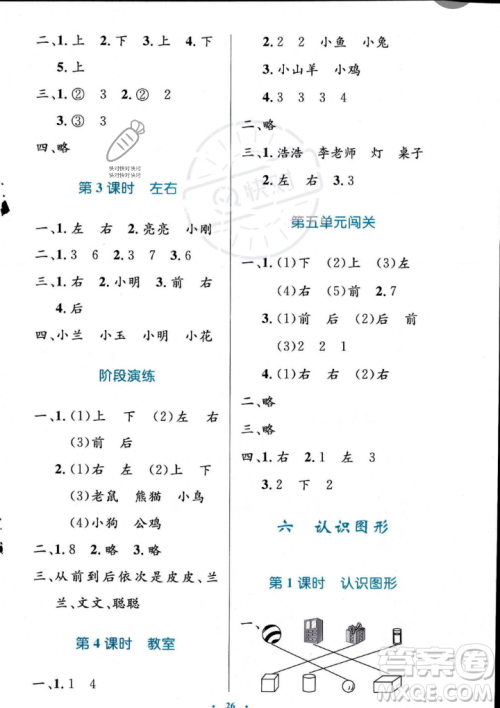 二、1.上 下 2.上 下 3.下 4.上
5.上
三、1.② 3 2.① ②
3.③ ③
四、略
快对快对快对
快对快对快对
第 3 课时 左右
一、1.左 右 2.亮亮 小刚
二、1.3 6 2.3 7 3.6
三、1.左 右 2.小明 3.前 右
4.后
四、小兰 小玉 小明 小花
阶段演练
一、1.(1)上 下 (2)左 右
(3)前 后
2.(1)左 右 (2)下 上
(3)老鼠 熊猫 小鸟
(4)小狗 公鸡
二、1.8 2.略 3.略
三、从前到后依次是皮皮、兰
兰、文文、聪聪
第 4 课时 教室
一、1.1 4
2.2 2 小鱼 小兔
3.小山羊 小鸡
4.3 3 3 4
二、略
三、1.浩浩 李老师 灯 桌子
2.左 右 3.3
快对
第五单元闯关
一、1.(1)下 (2)上 (3)左
(4)右 (5)前 (6)后
2.(1)前 后 后 前
(2)前 后
3.(1)2 2 1
4.(1)右 左 (2)2
二、略
三、略
四、1.右 2.1 左 3
3.2 下 2
六 认识图形
第 1 课时 认识图形
一、
26
答案圈
MXQE.COM